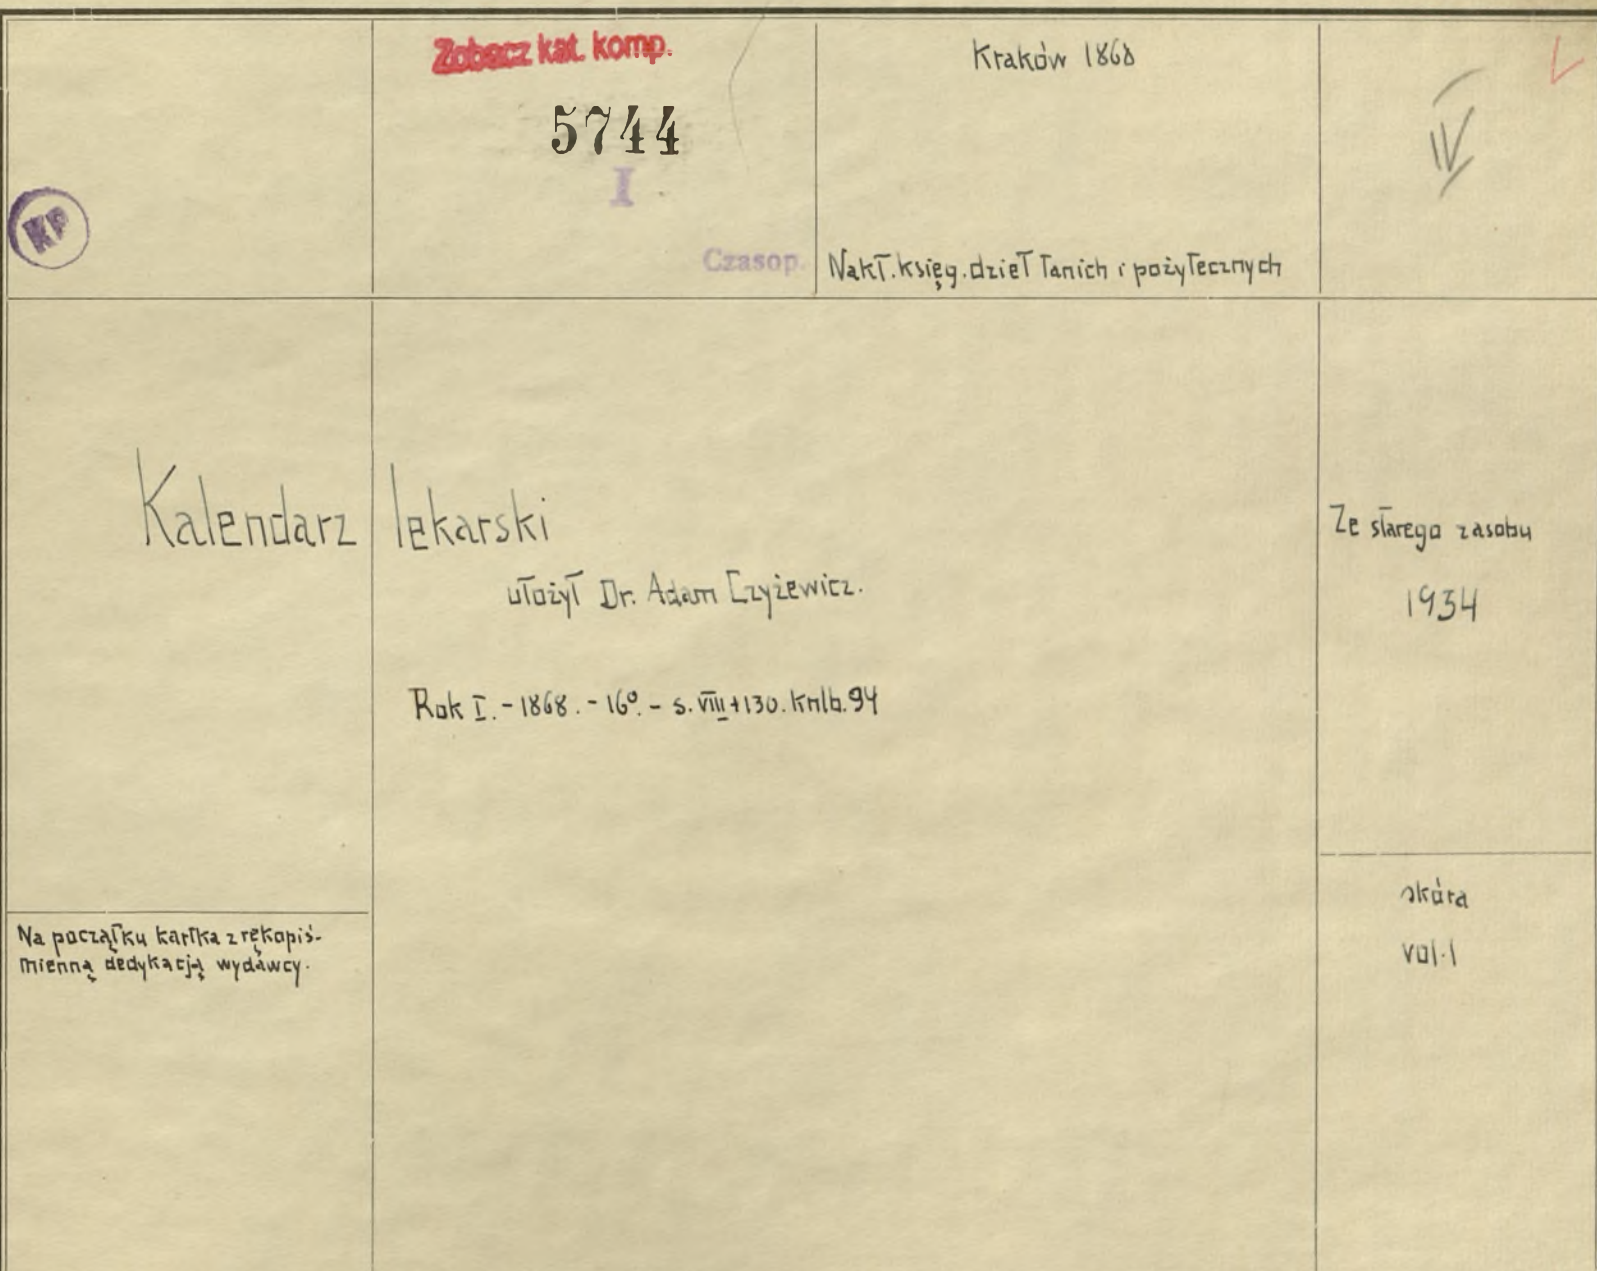 Zobacz kat. komp.
5744
I
Czasop.
KP
Kraków 1868
Nakł. księg. dzieł tanich i pożytecznych
IV
Kalendarz lekarski
ułożył Dr. Adam Czyżewicz.
Rok I. - 1868. - 16º. - s. VIII + 130. knlb. 94
Ze starego zasobu
1934
skóra
vol. 1
Na początku kartka z rękopiś-
mienną dedykacją wydawcy.